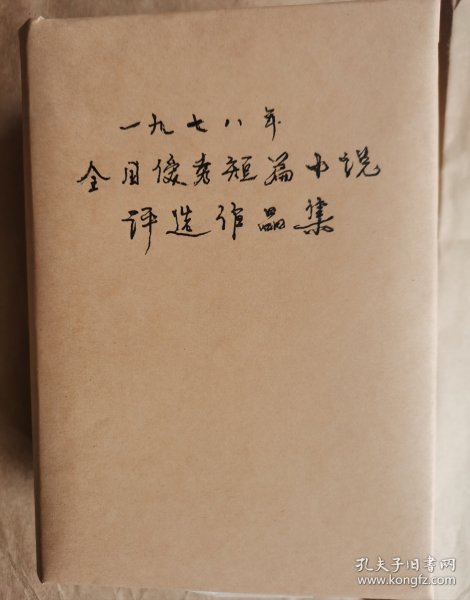 一九七八年
全国优秀短篇小说
评选作品集
孔夫子旧书网
www.kongfz.com